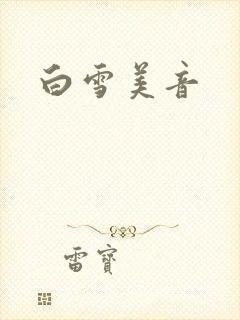 白雪美音
雷寶